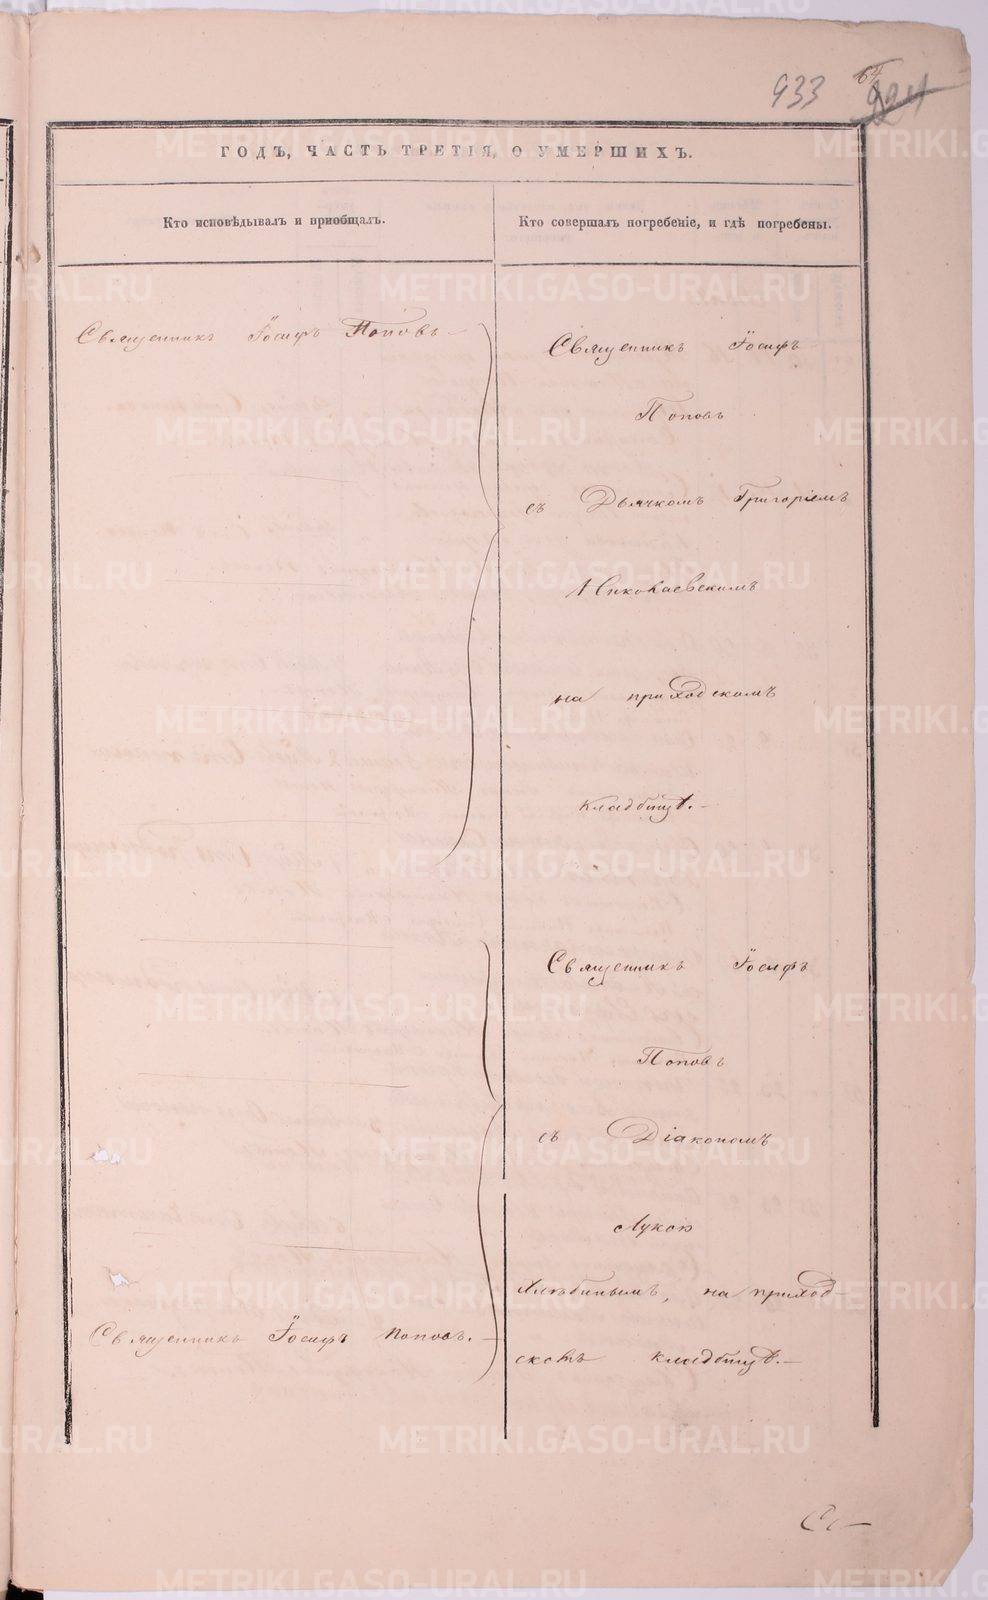 933
64
924
ГОДЪ, ЧАСТЬ ТРЕТІЯ, О УМЕРШИХЪ.
Кто исповѣдывалъ и приобщалъ.
Кто совершалъ погребеніе, и гдѣ погребены.
Священникъ Іосифъ Поповъ
Священникъ Іосифъ
Поповъ
съ Дьячкомъ Григоріемъ
Николаевскимъ
на приходскомъ
кладбищѣ.
Священникъ Іосифъ
Поповъ
съ Діакономъ
Лукою
Хлѣбинымъ, на приход-
скомъ кладбищѣ.
Священникъ Іосифъ Поповъ.
METRIKI.GASO-URAL.RU